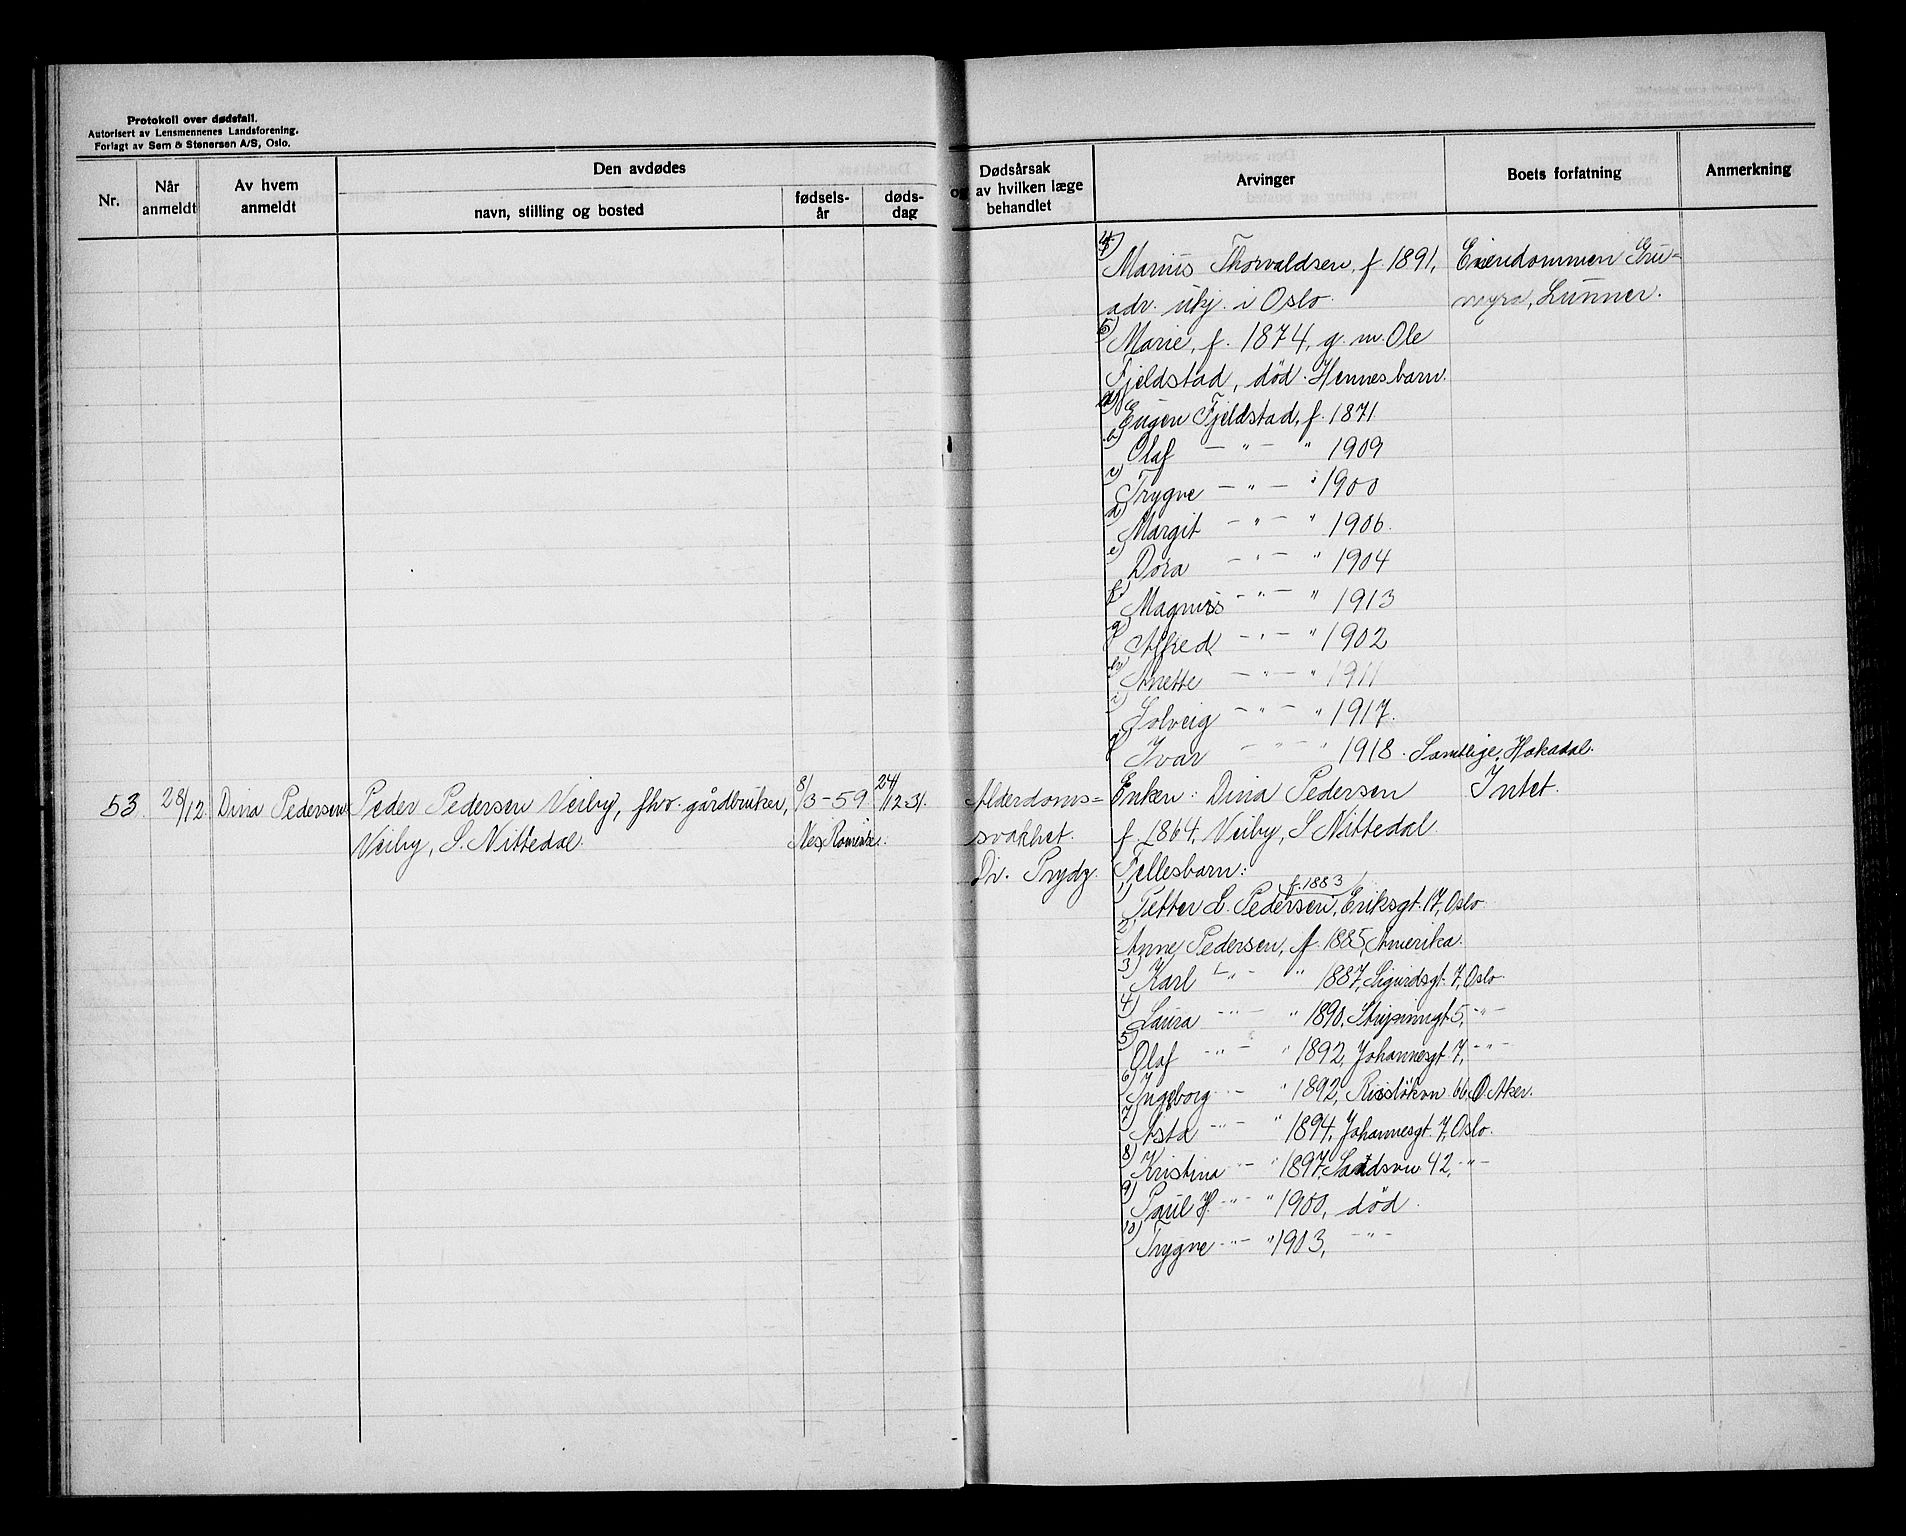 Protokoll over dødsfall.
Autorisert av Lensmennenes Landsforening.
Forlagt av Sem & Stenersen A/S, Oslo.
Nr.
Når anmeldt
Av hvem anmeldt
Den avdødes
navn, stilling og bosted
fødsels-år
døds-dag
Dødsårsak
og av hvilken læge
behandlet
Arvinger
Boets forfatning
Anmerkning
4) Marius Thorvaldsen, f. 1891, Eiendommen Gru-
adr. ukj. i Oslo. myra, Lunner.
5) Marie, f. 1874, g. m. Ole
Fjeldstad, død. Hennes barn:
a) Eugen Fjeldstad, f. 1871
b) Olaf — " — " 1909
c) Trygve — " — " 1900
d) Margit — " — " 1906.
e) Dora — " — " 1904
f) Magnus — " — " 1913
g) Alfred — " — " 1902
h) Anette — " — " 1911
i) Solveig — " — " 1917.
j) Ivar — " — " 1918. Samtlige, Hakadal.
53. 28/12. Dina Pedersen Peder Pedersen Veiby, fhv. gårdbruker, 8/3-59 24/12-31. Alderdoms= Enken: Dina Pedersen Intet.
Veiby, S. Nittedal. Nes, Romerike. svakhet. f. 1864, Veiby, S. Nittedal
Dr. Prydz. Fellesbarn:
f. 1883
1) Petter L. Pedersen, Eriksgt. 17, Oslo
2) Anne Pedersen, f. 1885, Amerika.
3) Karl L — " — " 1887, Sigurdsgt. 7, Oslo.
4) Laura — " — " 1890, 5, — " —
5) Olaf — " — " 1892, Johannesgt. 7, — " —
6) Ingeborg — " — " 1892, 66, Ø. Aker.
7) Asta — " — " 1894, Johannesgt. 7, Oslo.
8) Kristina — " — " 1897, 42, — " —
9) Paul H. — " — " 1900, død.
10) Trygve — " — " 1903, — " —